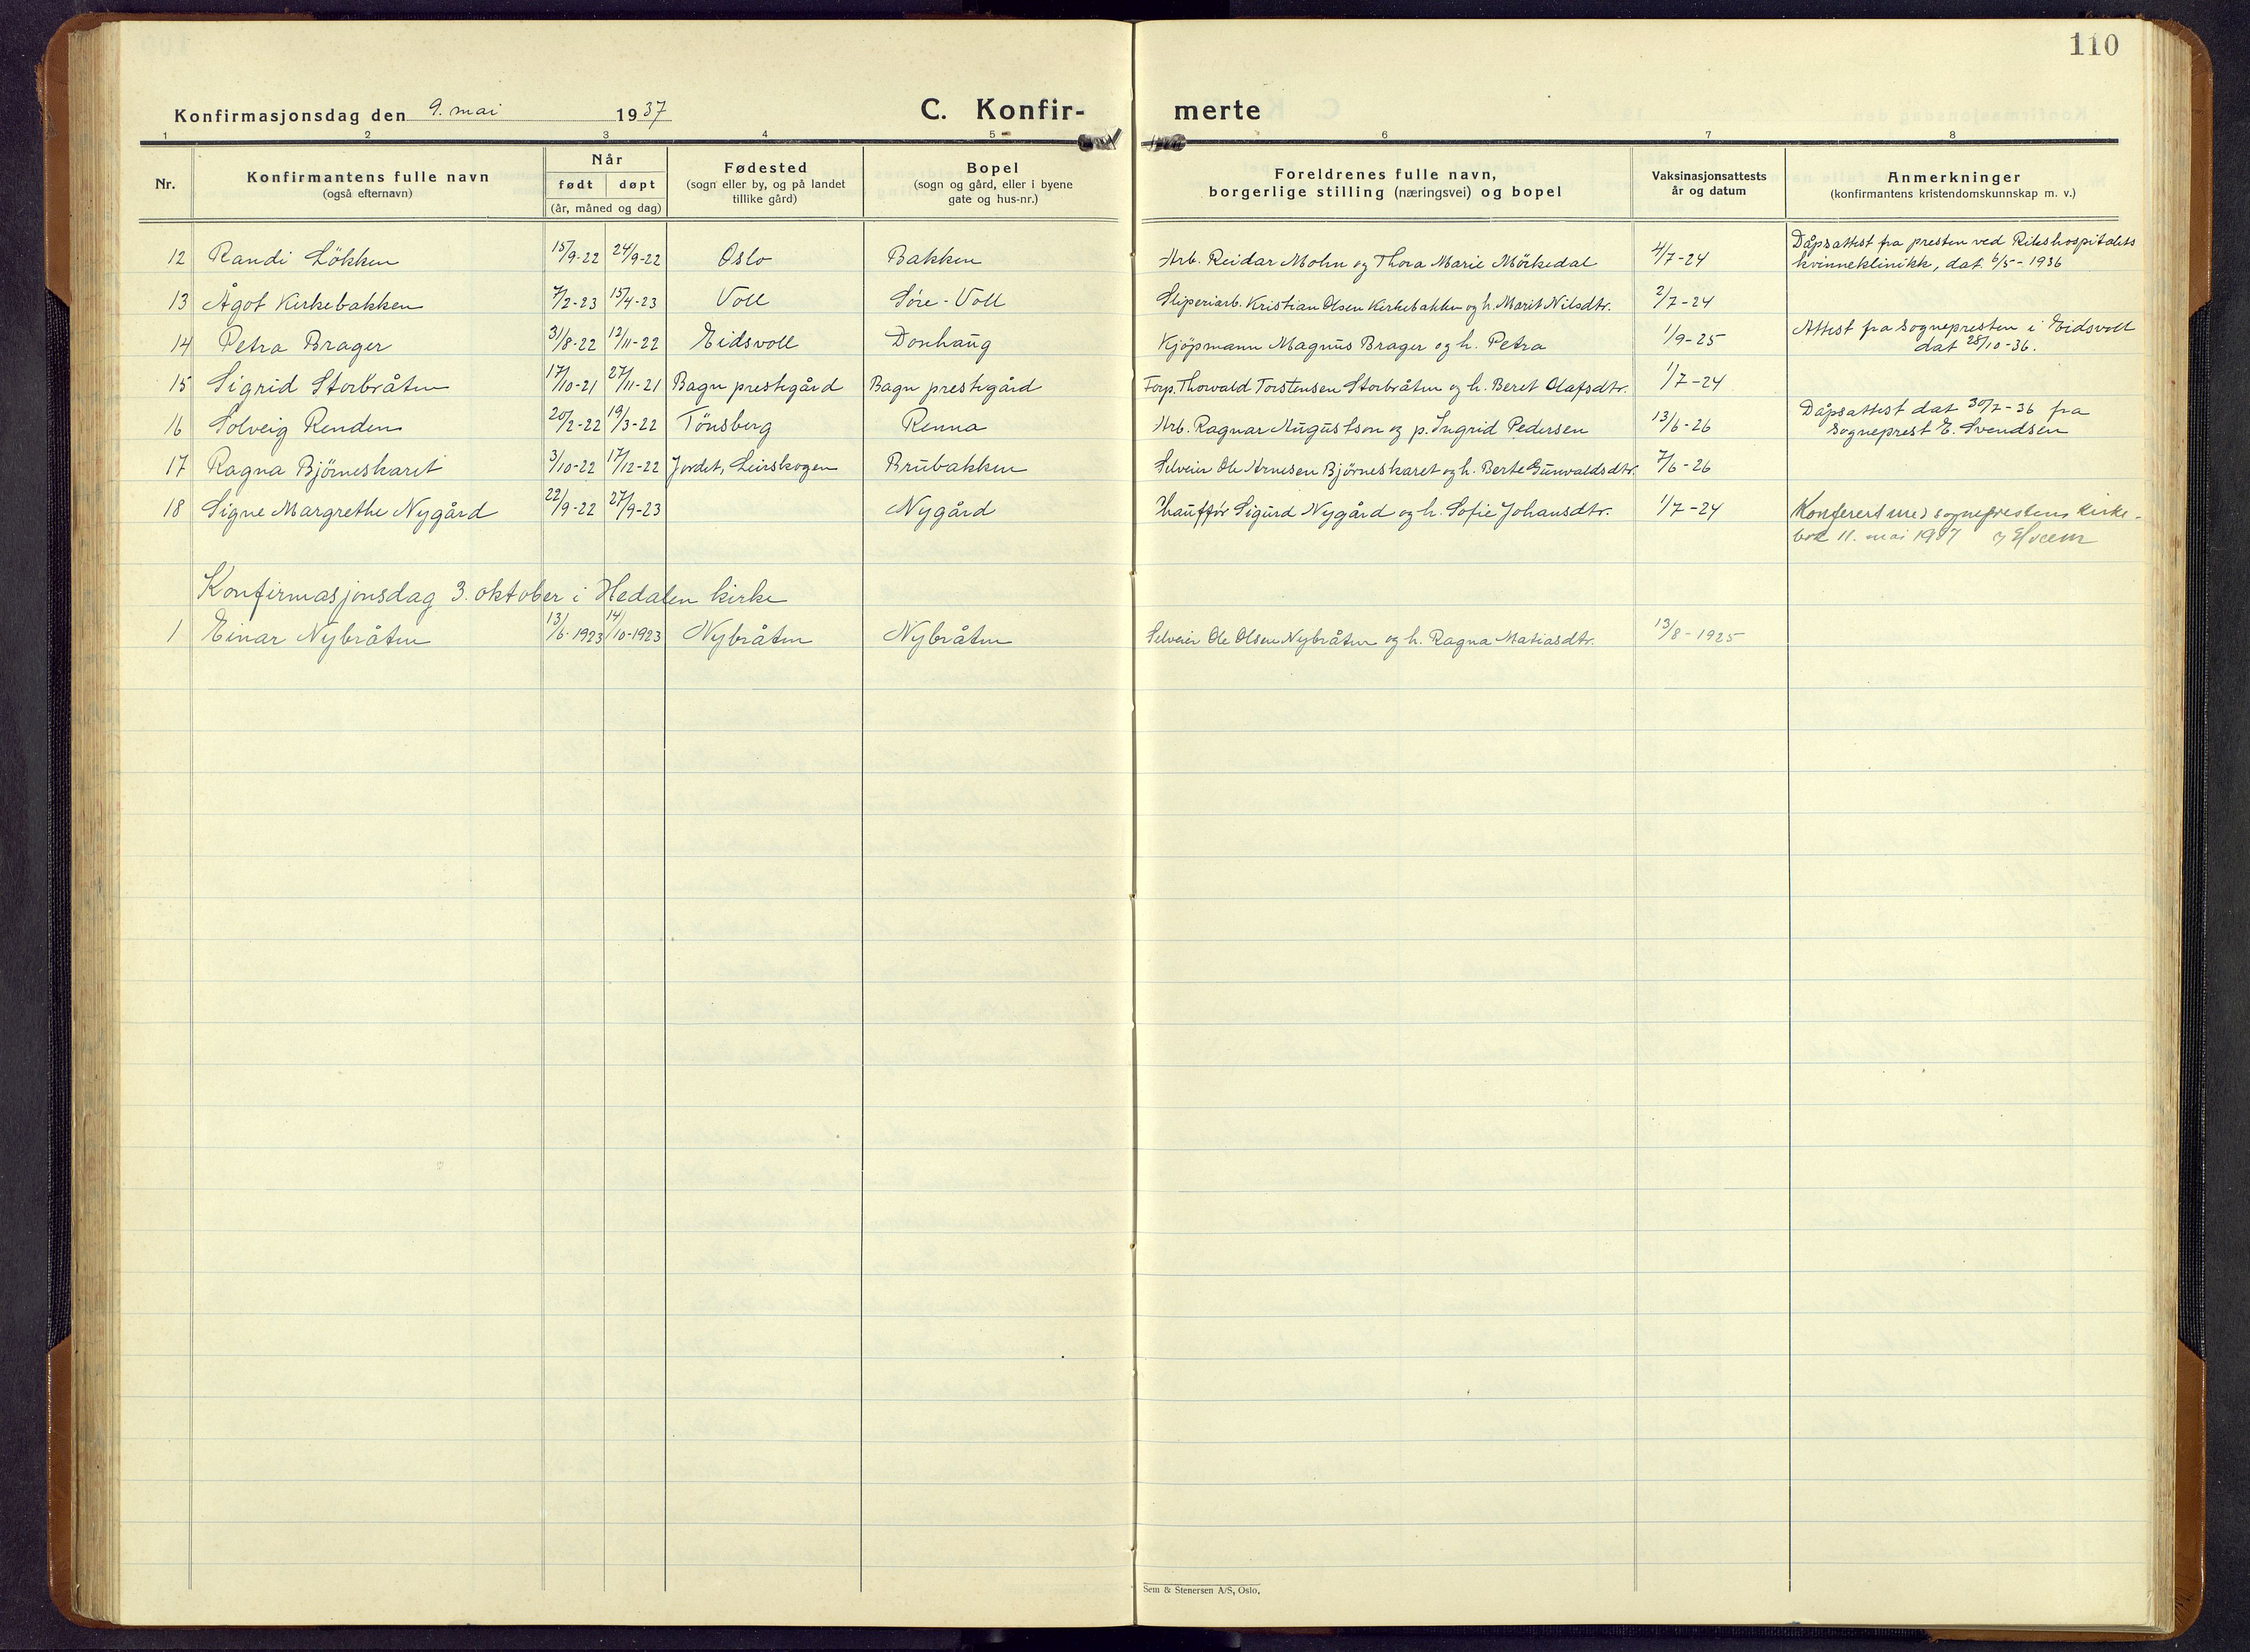 110
Konfirmasjonsdag den 9. mai 1937
C. Konfirmerte
1 2 3 4 5 6 7 8
Nr. Konfirmantens fulle navn (også efternavn) Når født døpt (år, måned og dag) Fødested (sogn eller by, og på landet tillike gård) Bopel (sogn og gård, eller i byene gate og hus-nr.) Foreldrenes fulle navn, borgerlige stilling (næringsvei) og bopel Vaksinasjonsattests år og datum Anmerkninger (konfirmantens kristendomskunnskap m. v.)
12 Randi Lökken 15/9-22 24/9-22 Oslo Bakken Arb. Reidar Mohn og Thora Marie Mörkedal 4/7-24 Dåpsattest fra presten ved Rikshospitalets kvinneklinikk, dat. 6/5-1936
13 Ågot Kirkebakken 7/2-23 15/4-23 Voll Søre-Voll Sliperiarb. Kristian Olsen Kirkebakken og h. Marit Nilsdtr. 2/7-24
14 Petra Brager 31/8-22 12/11-22 Eidsvoll Donhaug Kjöpmann Magnus Brager og h. Petra 1/9-25 Attest fra sognepresten i Eidsvoll dat 28/10-36.
15 Sigrid Storbråten 17/10-21 27/11-21 Bagn prestegård Bagn prestegård Forp. Thorvald Torstensen Storbråten og h. Beret Olafsdtr. 1/7-24
16 Solveig Renden 20/2-22 19/3-22 Tönsberg Renna Arb. Ragnar Augustson og p. Ingrid Pedersen 13/6-26 Dåpsattest dat 30/7-36 fra sogneprest E. Svendsen
17 Ragna Björneskaret 3/10-22 17/12-22 Jordet, Leirskogen Brubakken Selveier Ole Arnesen Bjørneskaret og h. Berte Gunvaldsdtr. 7/6-26
18 Signe Margrethe Nygård 22/9-22 27/9-23 Nygård Chauffør Sigurd Nygård og h. Sofie Johansdtr. 1/7-24 Konferert med sogneprestens kirkebok 11. mai 1937
Konfirmasjonsdag 3. oktober i Hedalen kirke
1 Einar Nybråten 13/6-1923 14/10-1923 Nybråten Nybråten Selveier Ole Olsen Nybråten og h. Ragna Matiasdtr. 13/8-1925
Sem & Stenersen A/S, Oslo.